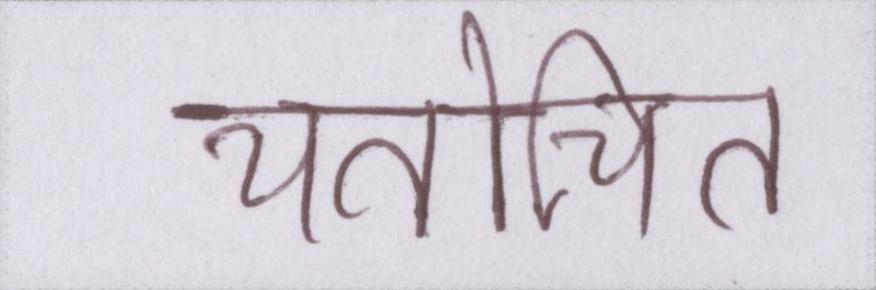 यतोचित